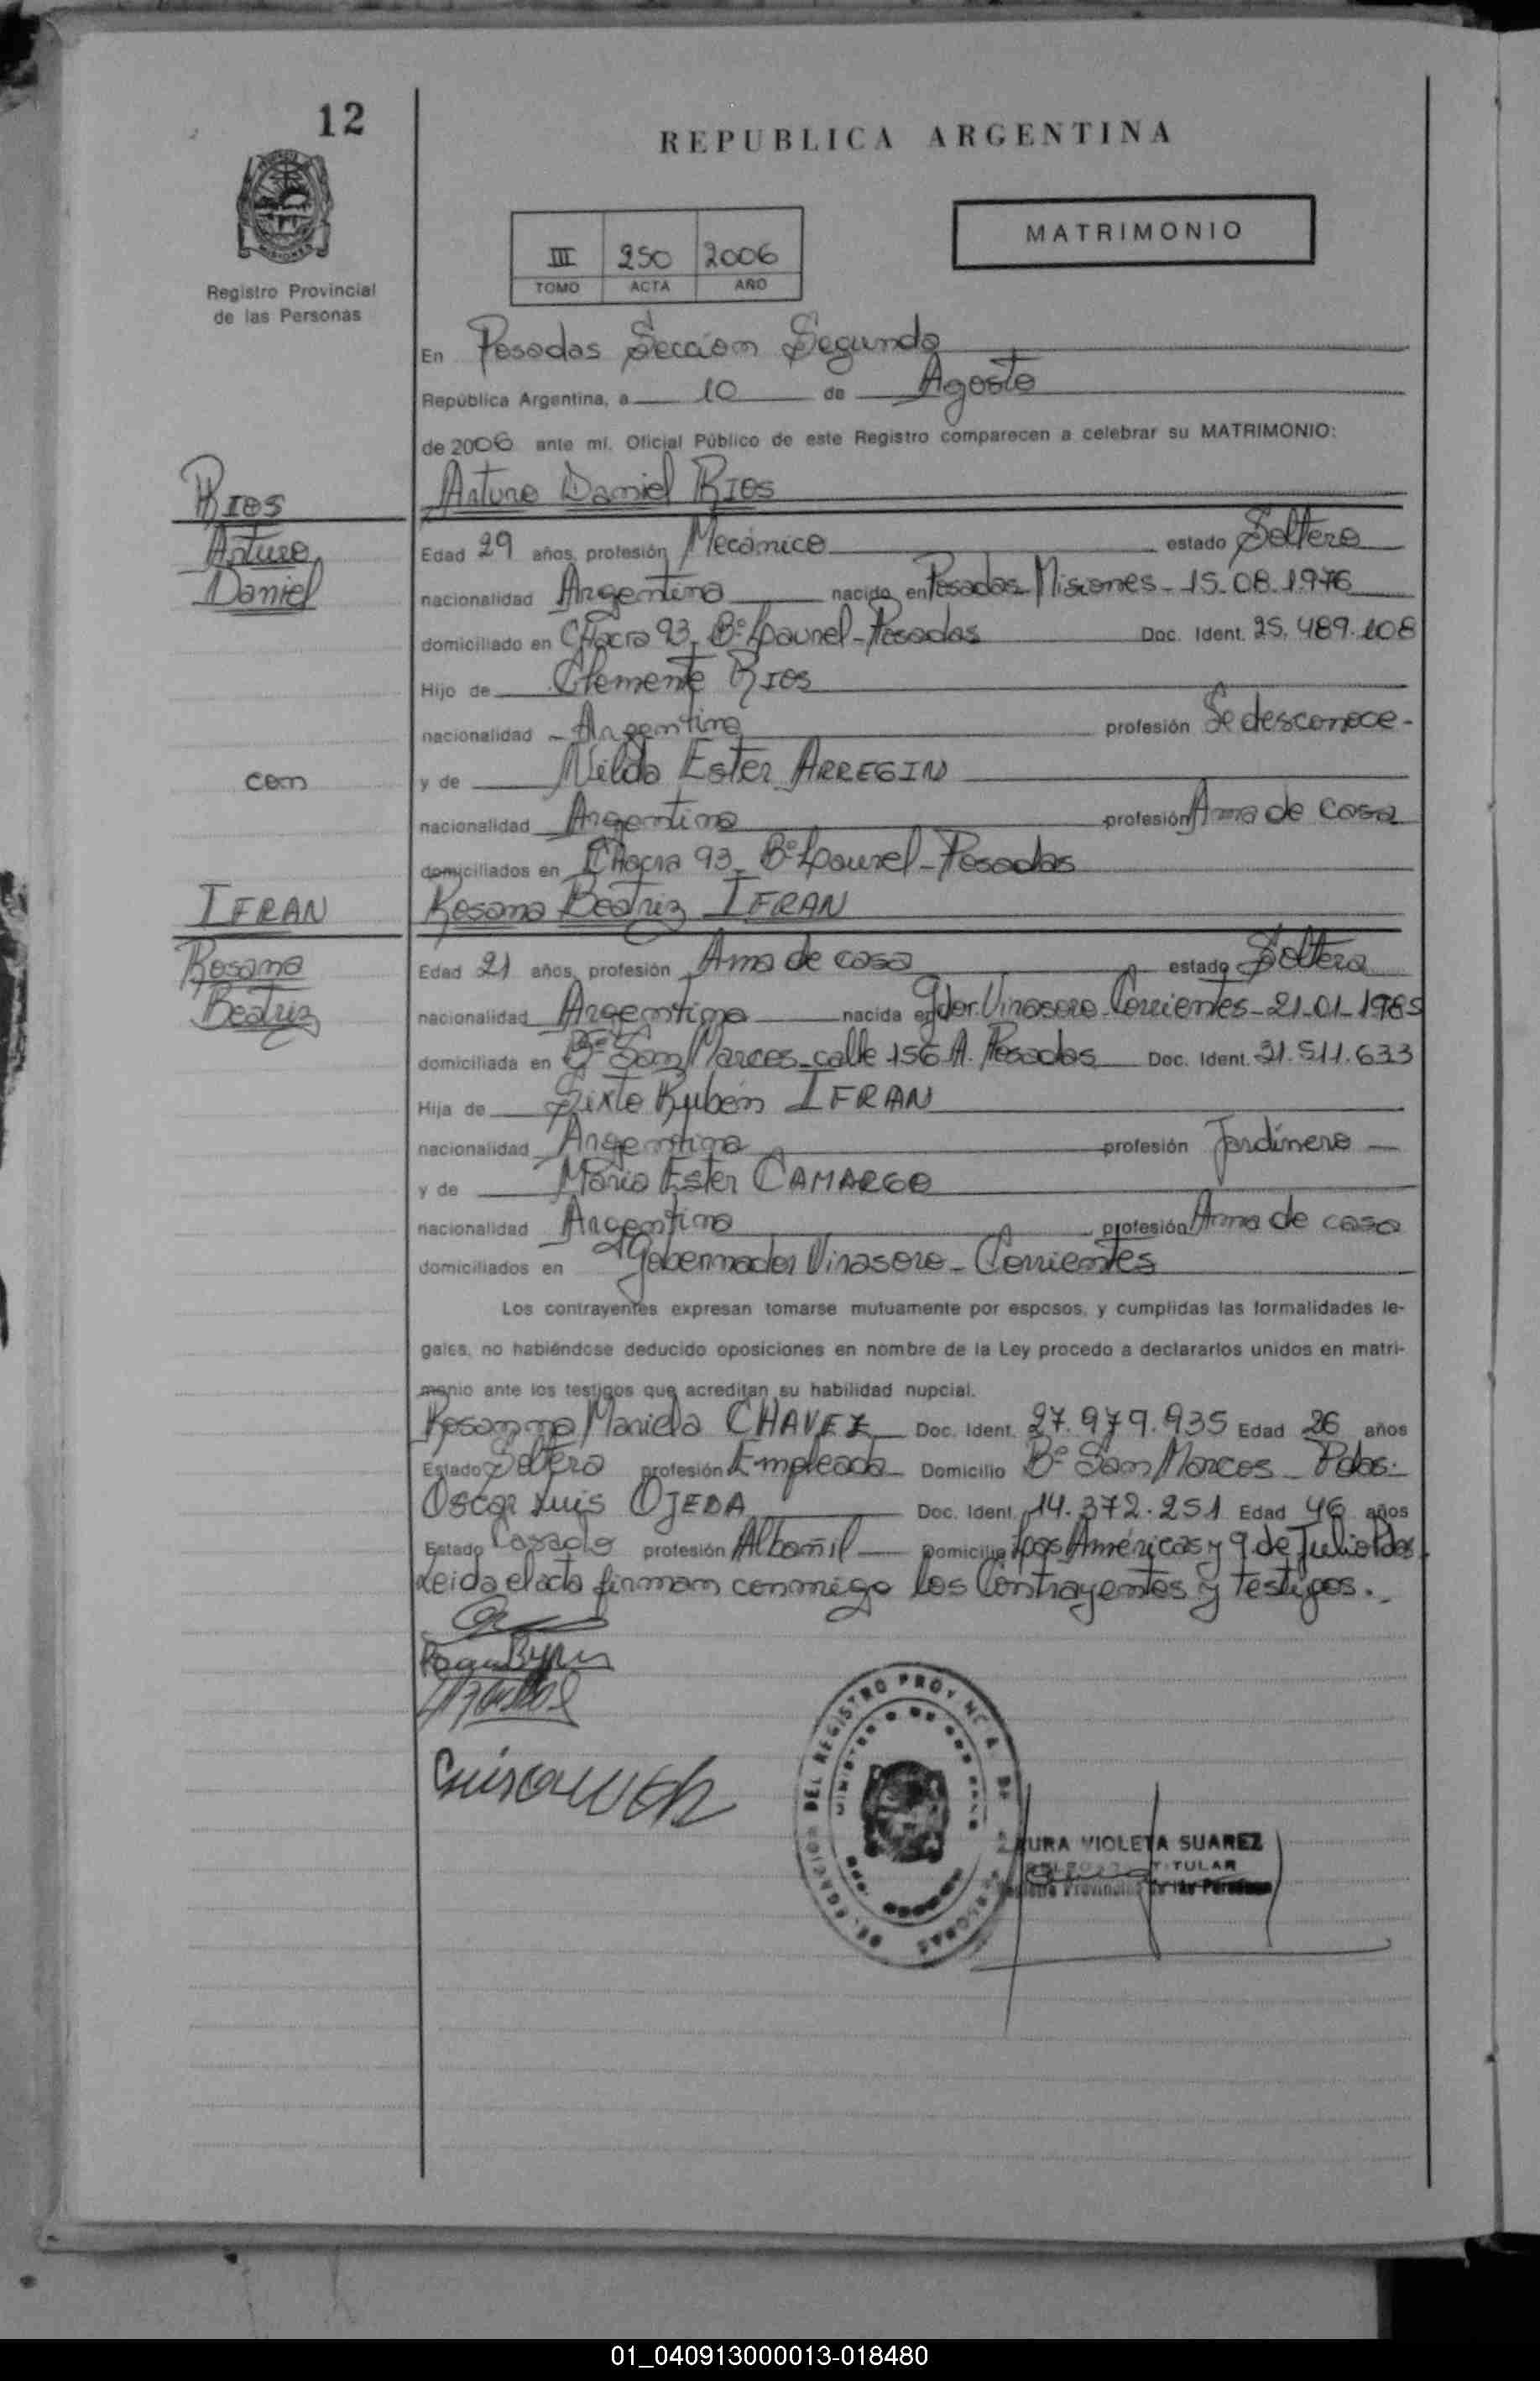 12
REPUBLICA ARGENTINA
MATRIMONIO
III 250 2006
TOMO ACTA AÑO
MISIONES
Registro Provincial
de las Personas
En Posadas Sección Segunda
República Argentina, a 10 de Agosto
de 2006 ante mí, Oficial Público de este Registro comparecen a celebrar su MATRIMONIO:
RIOS
Arturo Daniel RIOS
Arturo
Edad 29 años, profesión Mecánico estado Soltero
Daniel
nacionalidad Argentina nacido en Posadas Misiones - 15-08-1976
domiciliado en CHacra 93- Bº Laurel-Posadas Doc. Ident. 25.489.108
Hijo de Clemente RIOS
nacionalidad - Argentina profesión Se desconoce-
con
y de Nilda Ester ARREGIN
nacionalidad Argentina profesión Ama de casa
domiciliados en CHacra 93- Bº Laurel-Posadas
IFRAN
Rosana Beatriz IFRAN
Rosana
Edad 21 años, profesión Ama de casa estado Soltera
Beatriz
nacionalidad Argentina nacida en Gdor. Virasoro-Corrientes-21-01-1985
domiciliada en Bº San Marcos-calle 156 A. Posadas Doc. Ident. 31.511.633
Hija de Sixto Rubén IFRAN
nacionalidad Argentina profesión Jardinero -
y de María Ester CAMARGO
nacionalidad Argentina profesión Ama de casa
domiciliados en Gobernador Virasoro - Corrientes
Los contrayentes expresan tomarse mutuamente por esposos, y cumplidas las formalidades le-
gales, no habiéndose deducido oposiciones en nombre de la Ley procedo a declararlos unidos en matri-
monio ante los testigos que acreditan su habilidad nupcial.
Rosanna Mariela CHAVEZ Doc. Ident. 27.979.935 Edad 26 años
Estado Soltera profesión Empleada Domicilio Bº San Marcos - Pdas.
Oscar Luis OJEDA Doc. Ident. 14.372.251 Edad 46 años
Estado Casado profesión Albañil Domicilio Las Américas y 9 de Julio Pdas.
Leida el acta firman conmigo los Contrayentes y testigos.
DELEGACION DEL REGISTRO PROVINCIAL DE LAS PERSONAS
LAURA VIOLETA SUAREZ
TITULAR
Registro Provincial de las Personas
01_040913000013-018480